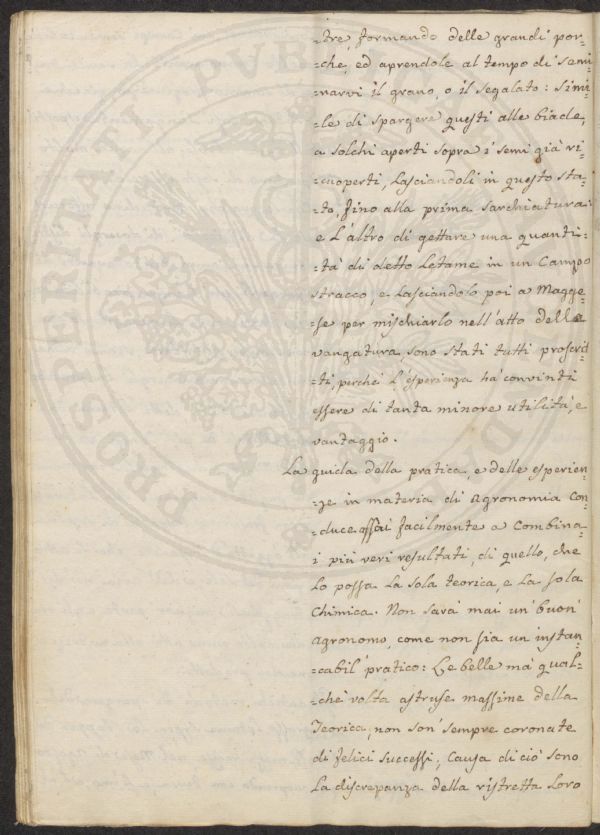 -tre, formando delle grandi por-
-che, ed aprendole al tempo di semi-
-narvi il grano, o il segalato: Simi-
-le di spargere questi alle biade,
a solchi aperti sopra i semi già ri-
-cuoperti, Lasciandoli in questo sta-
-to, fino alla prima sarchiatura:
e L'altro di gettare una quanti-
-tà di detto Letame in un Campo
stracco, e Lasciandolo poi a Magge-
-se per mischiarlo nell'atto della
vangatura, sono stati tutti proscrit-
-ti, perchè L'esperienza hà convinti
essere di tanta minore utilità, e
vantaggio.
La guida della pratica, e delle esperien-
-ze in materia di Agronomia con-
-duce assai facilmente a Combina-
i più veri resultati, di quello, che
Lo possa La sola teorica, e La sola
Chimica. Non sarà mai un'buon'
Agronomo, come non sia un instan-
-cabil'pratico: Le belle mà qual-
-chè volta astruse massime della
Teorica, non son'sempre coronate
di felici successi, Causa di ciò sono
La discrepanza della ristretta Loro
PROSPERITATI PVBLICAE